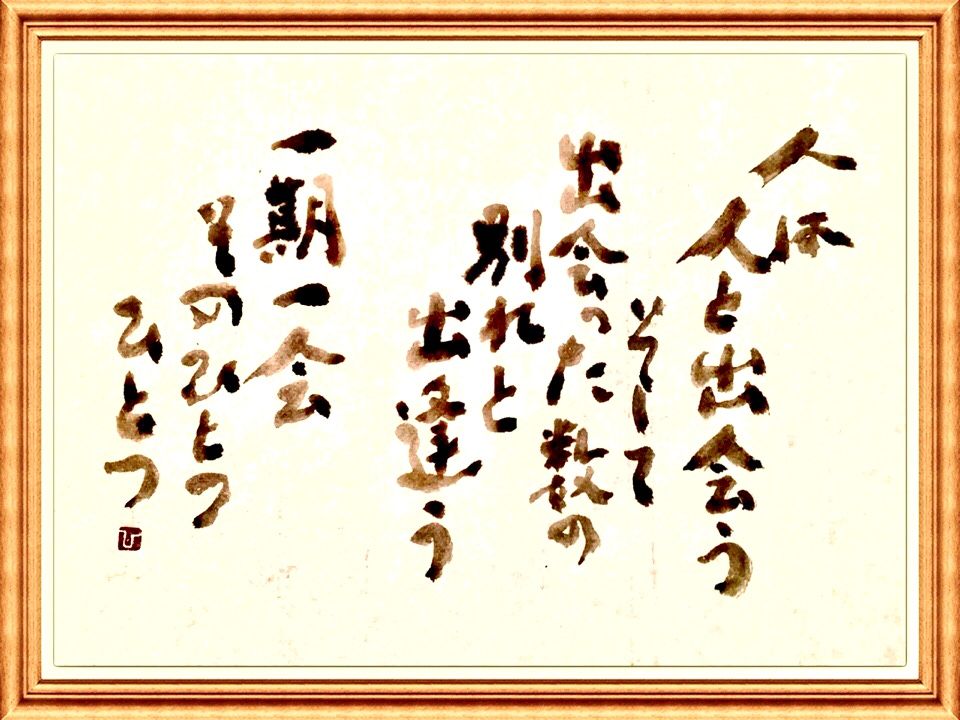 人は
人と出会う
そして
出会った数の
別れと
出逢う
一期一会
そのひとつ
ひとつ
ひ